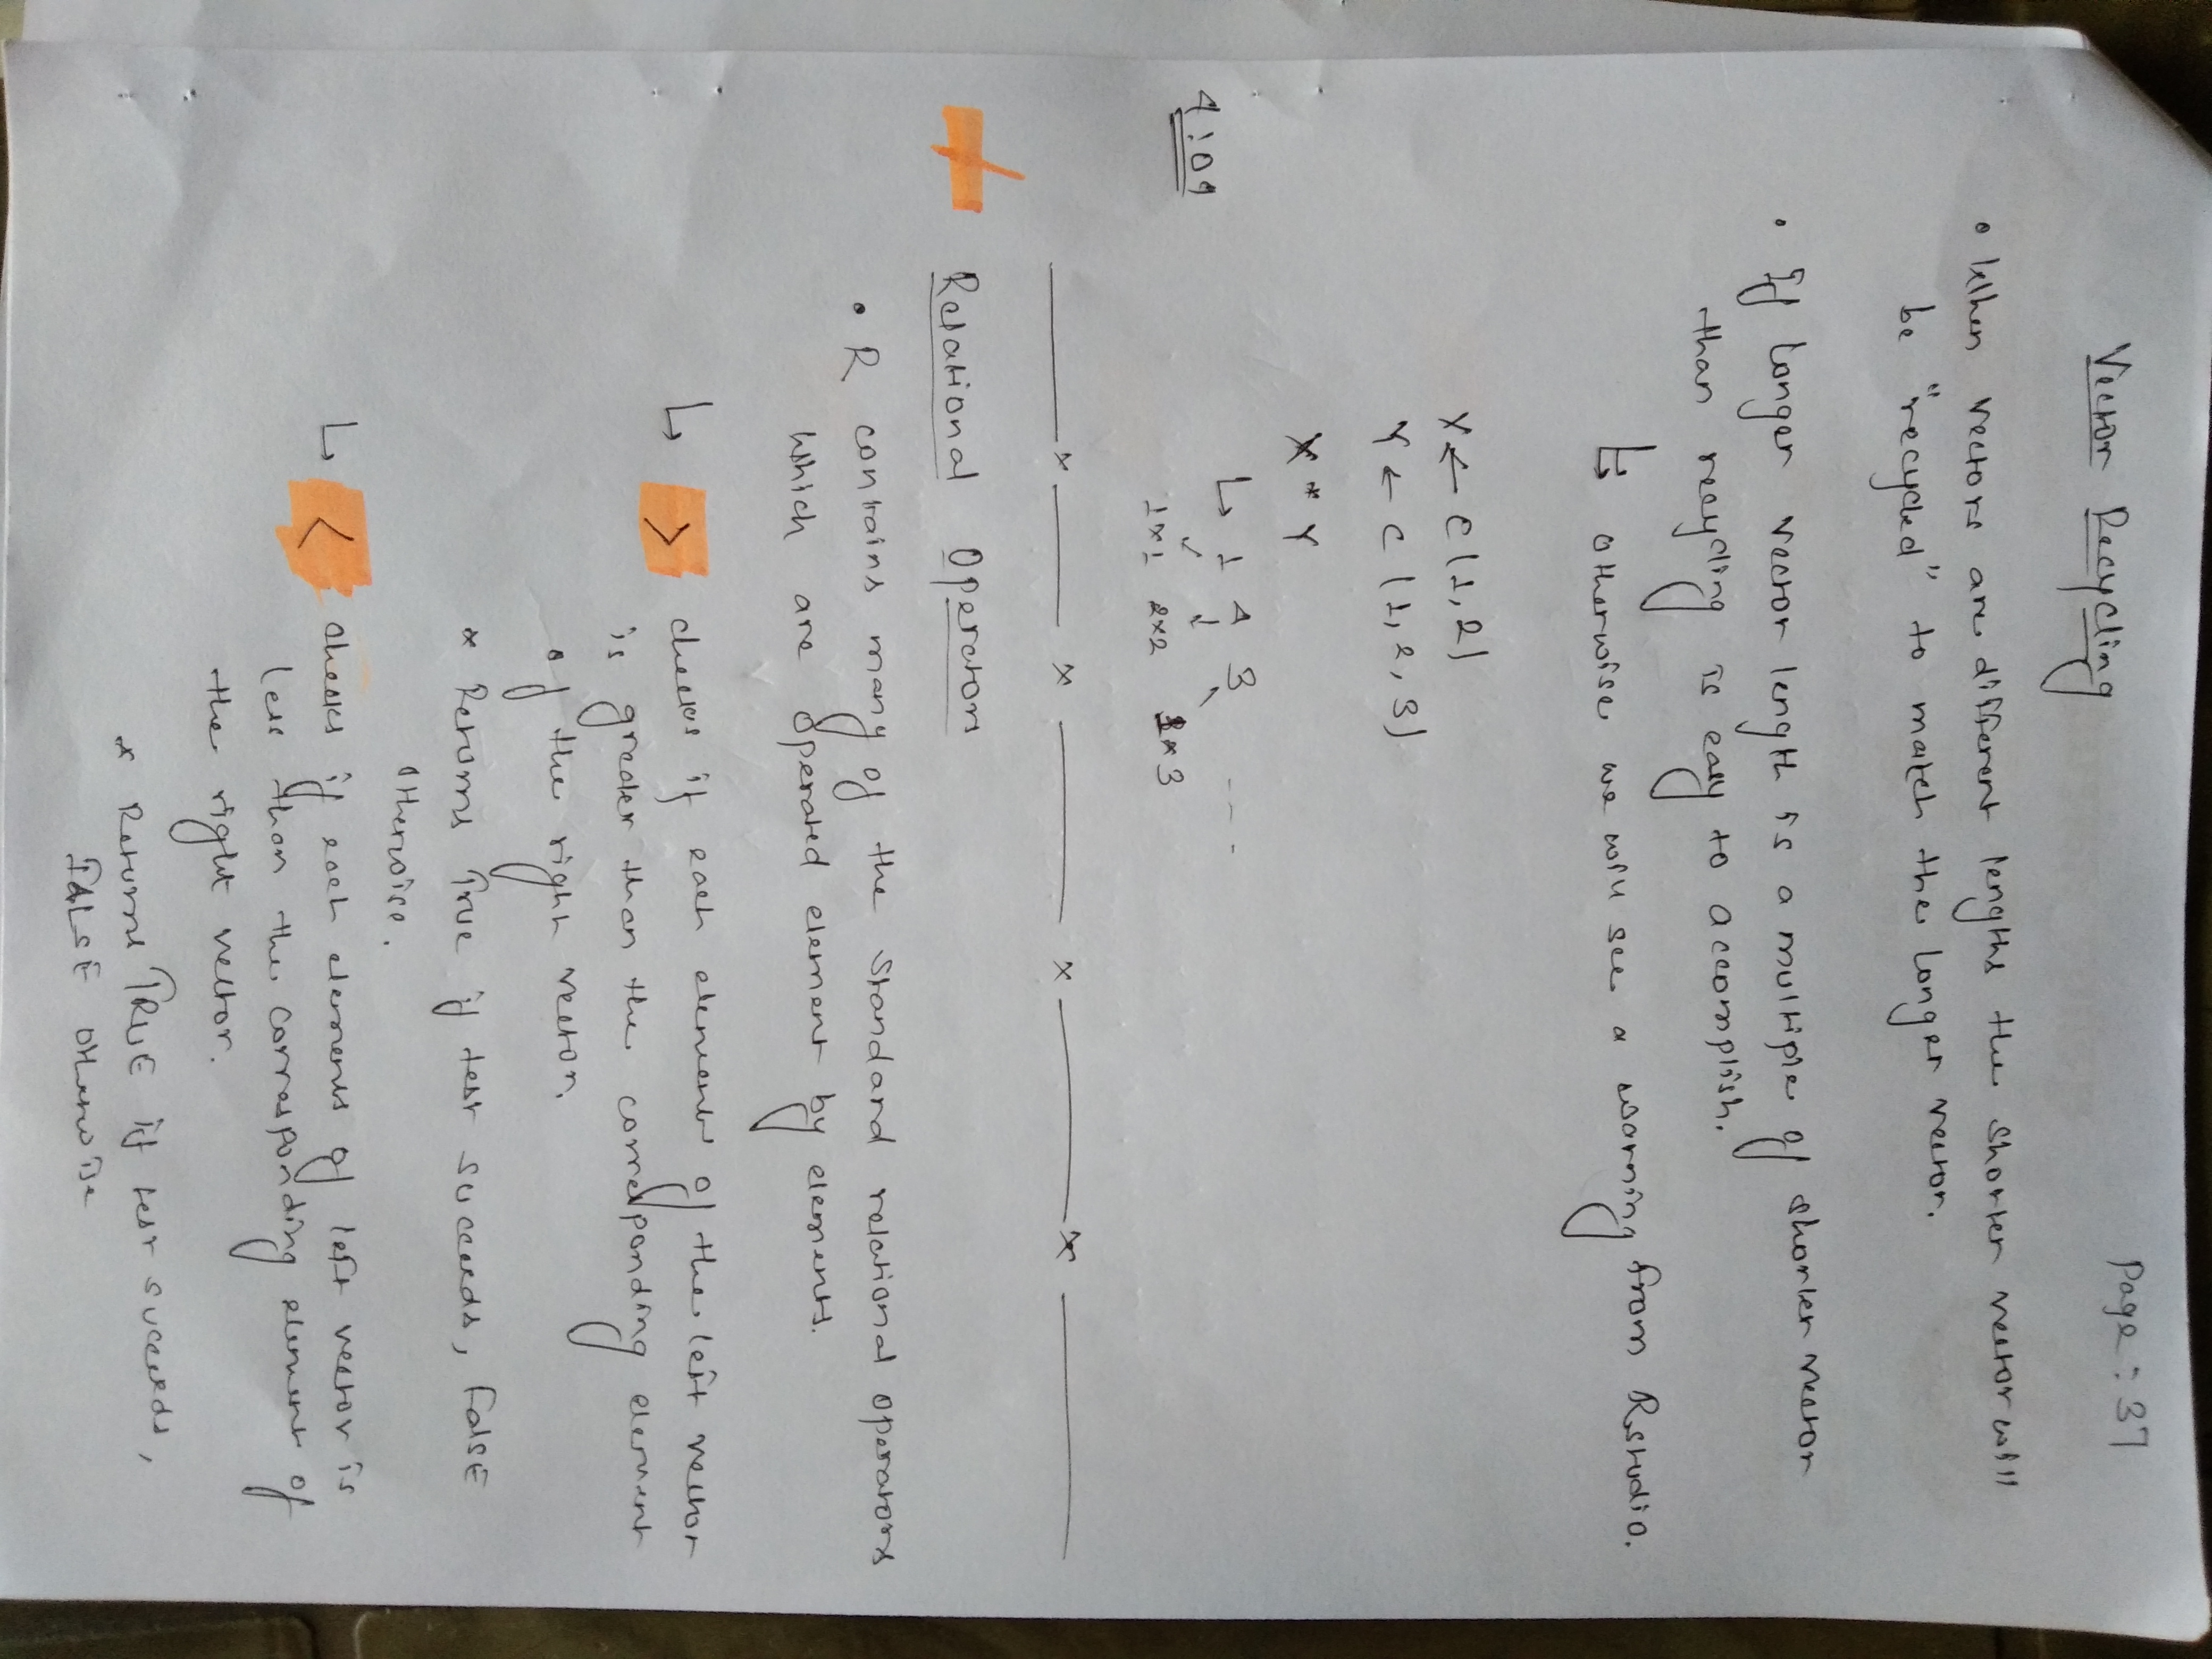 Page: 37
Vector Recycling
• When vectors are different lengths the shorter vector will
be "recycled" to match the longer vector.
• If longer vector length is a multiple of shorter vector
than recycling is easy to accomplish.
↳ otherwise we will see a warning from Rstudio.
X ← c(1,2)
Y ← c(1,2,3)
X * Y
↳ 1 4 3 ....
1x1 2x2 1x3
4:09
Relational Operators
• R contains many of the standard relational operators
which are operated element by elements.
↳ > checks if each element of the left vector
is greater than the corresponding element
of the right vector.
* Returns True if test succeeds, FalsE
otherwise.
↳ < checks if each elements of left vector is
less than the corresponding element of
the right vector.
* Returns TRUE if test succeeds,
FALSE otherwise